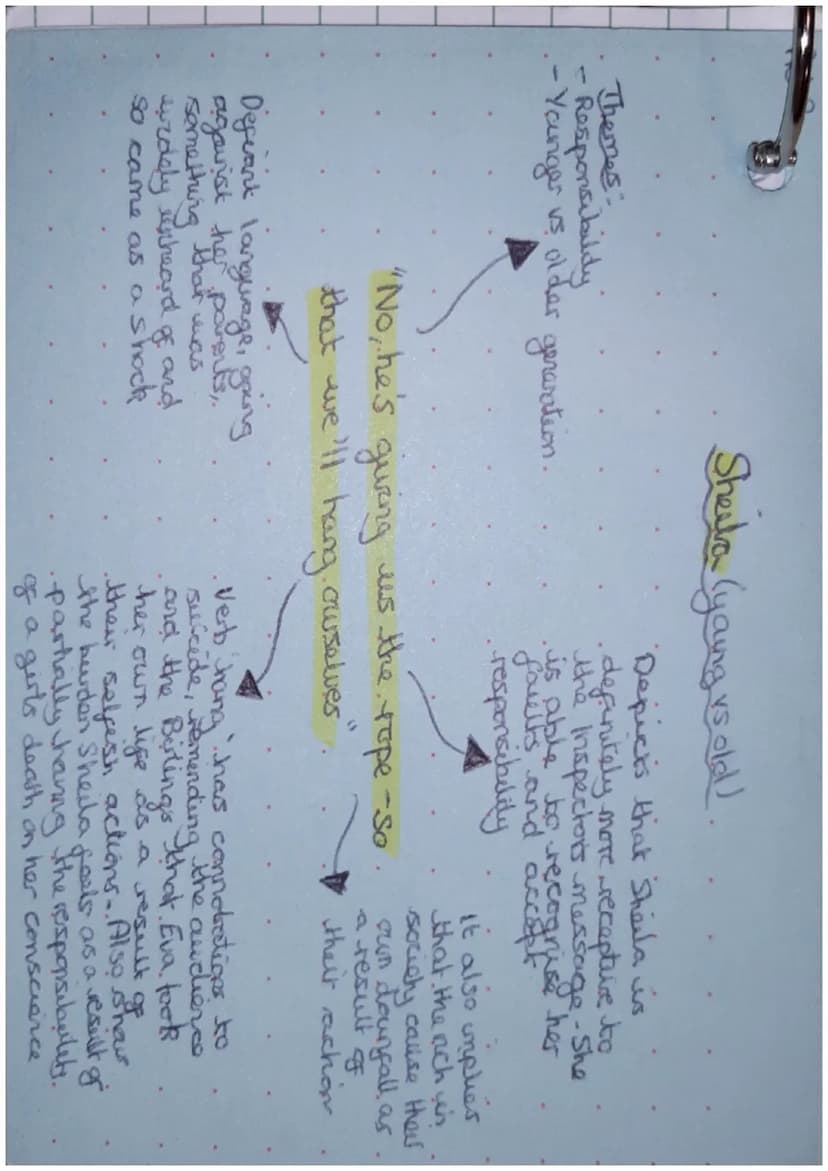 Sheila (young vs old)
Themes:
- Responsibility
- Younger vs older generation.
Depicts that Sheila is
definitely more receptive to
the Inspectors message - She
is able to recognise her
faults and accept
responsibility
"No, he's giving us the rope - so
that we'll hang ourselves"
Defiant language, going
against her parents,
something that was
widely unheard of and
so came as a shock
Verb 'hang' has connotations to
suicide, reminding the audience
and the Birlings that Eva took
her own life as a result of
their selfish actions. Also show
the burden Sheila feels as a result of
partially having the responsibility
of a girls death on her conscience
It also implies
that the rich in
society cause their
own downfall as
a result of
their action